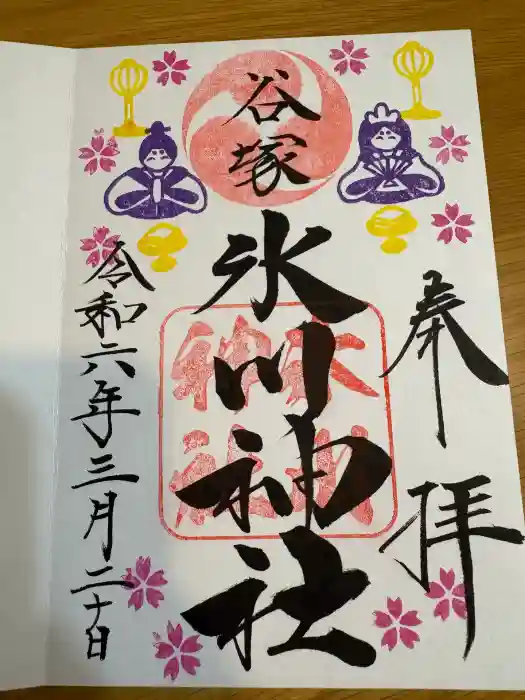 奉拝
谷塚
氷川神社
氷川神社
令和六年三月二十日